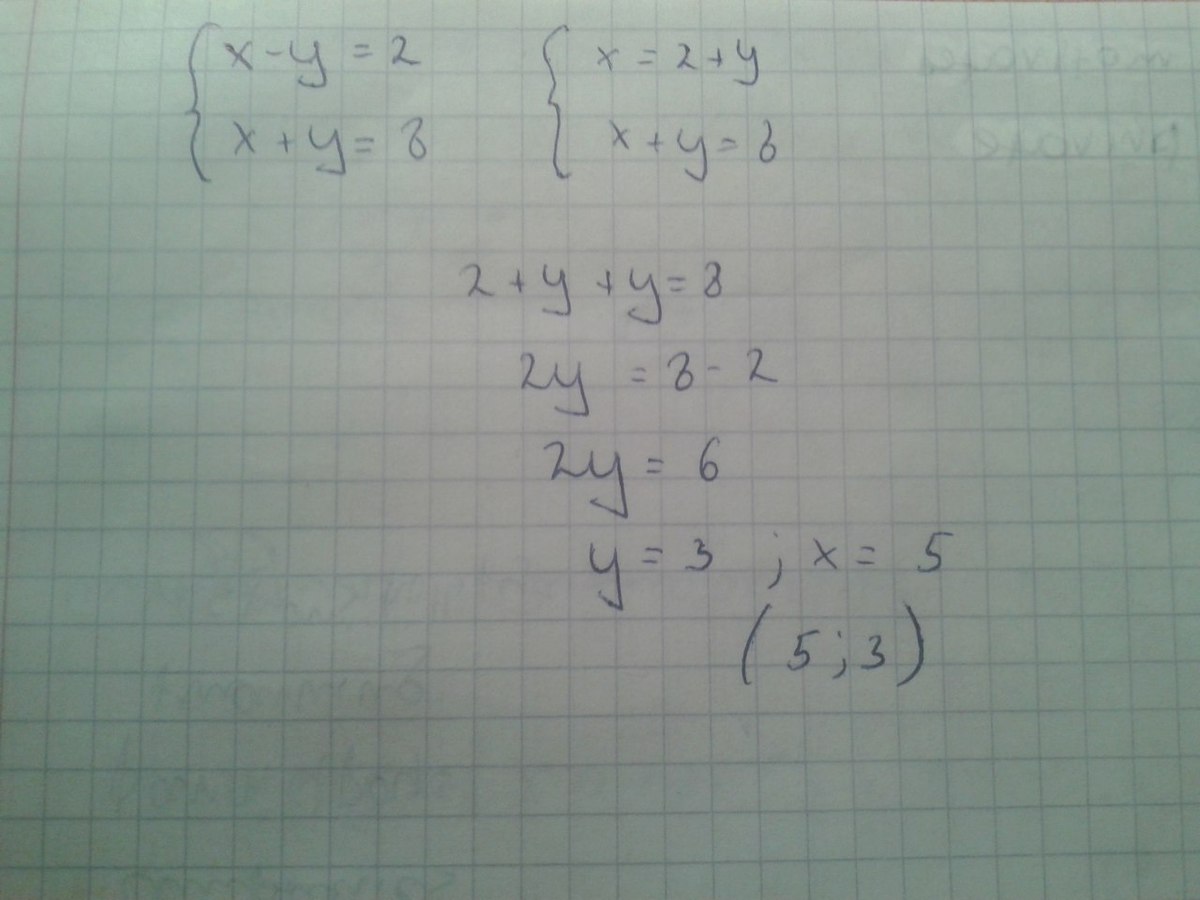 { x - y = 2 { x = 2 + y
x + y = 8 x + y = 8
2 + y + y = 8
2y = 8 - 2
2y = 6
y = 3 ; x = 5
(5 ; 3)